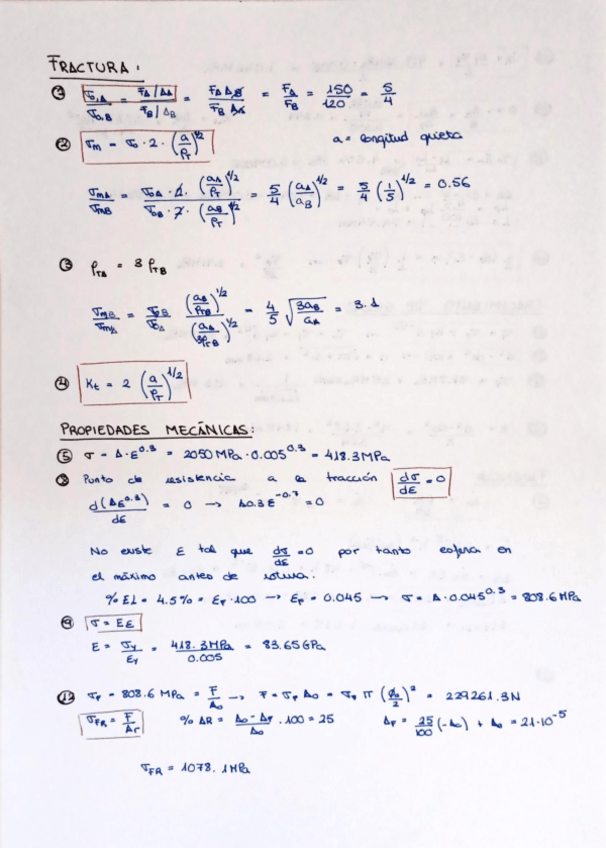 FRACTURA:
① σ₀,A / σ₀,B = (F_A/A_A) / (F_B/A_B) = F_A A_B / F_B A_A = F_A / F_B = 150 / 120 = 5 / 4
② σm = σ₀ · 2 · (a/ρ_T)^1/2   a = longitud grieta
σmA / σmB = σ₀A · 2 · (a_A/ρ_T)^1/2 / σ₀B · 2 · (a_B/ρ_T)^1/2 = 5/4 (a_A/a_B)^1/2 = 5/4 (1/5)^1/2 = 0.56
③ ρ_TA = 3 ρ_TB
σmB / σmA = σ₀B / σ₀A (a_B/ρ_TB)^1/2 / (a_A/3ρ_TB)^1/2 = 4/5 √(3a_B/a_A) = 3.1
④ Kt = 2 (a/ρ_T)^1/2
PROPIEDADES MECÁNICAS:
⑤ σ = A · ε^0.3 = 2050 MPa · 0.005^0.3 = 418.3 MPa
⑧ Punto de resistencia a la tracción dσ/dε = 0
d(Aε^0.3)/dε = 0 → A0.3ε^-0.7 = 0
No existe ε tal que dσ/dε = 0 por tanto estará en
el máximo antes de rotura.
% EL = 4.5% = εp · 100 → εp = 0.045 → σ = A · 0.045^0.3 = 808.6 MPa
⑨ σ = Eε
E = σy / εy = 418.3 MPa / 0.005 = 83.65 GPa
⑫ σF = 808.6 MPa = F/A₀ → F = σF A₀ = σF π (ϕ₀/2)² = 229261.3 N
σFR = F/AF   % AR = (A₀ - AF)/A₀ · 100 = 25   AF = 25/100 (-A₀) + A₀ = 21·10^-5
σFR = 1078.1 MPa